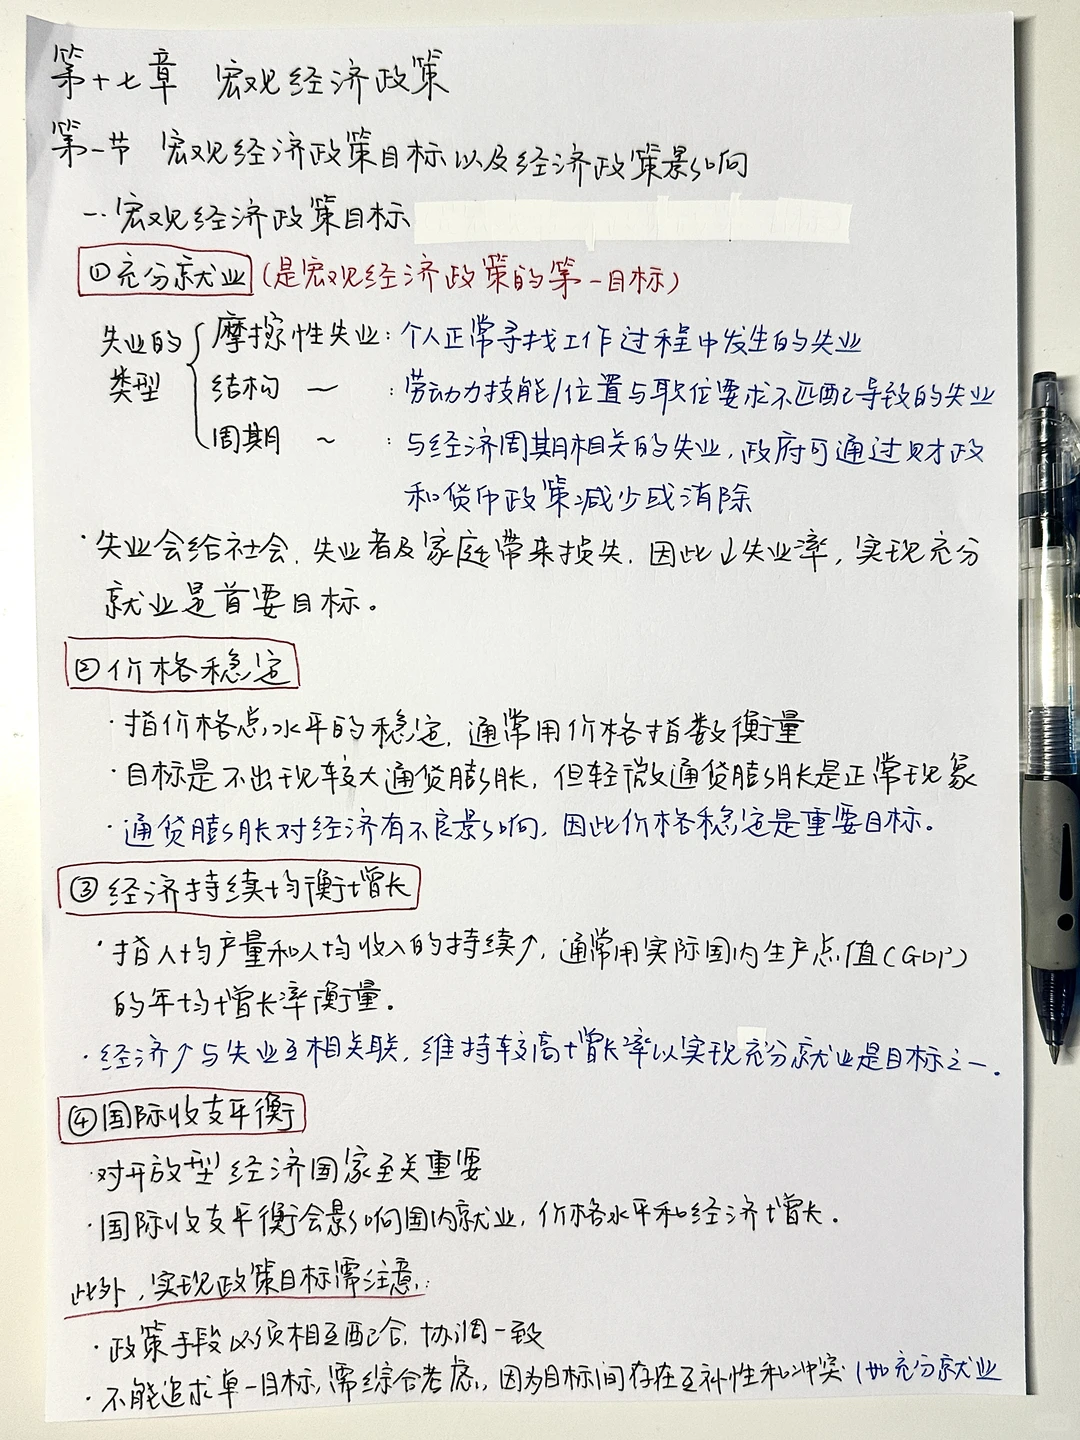 第十七章 宏观经济政策
第一节 宏观经济政策目标以及经济政策影响
一.宏观经济政策目标
①充分就业(是宏观经济政策的第一目标)
失业的类型
摩擦性失业:个人正常寻找工作过程中发生的失业
结构 ~ :劳动力技能/位置与职位要求不匹配导致的失业
周期 ~ :与经济周期相关的失业,政府可通过财政
和货币政策减少或消除
·失业会给社会、失业者及家庭带来损失,因此↓失业率,实现充分
就业是首要目标。
②价格稳定
·指价格总水平的稳定,通常用价格指数衡量
·目标是不出现较大通货膨胀,但轻微通货膨胀是正常现象
·通货膨胀对经济有不良影响,因此价格稳定是重要目标。
③经济持续均衡增长
·指人均产量和人均收入的持续↑,通常用实际国内生产总值(GDP)
的年均增长率衡量.
·经济↑与失业互相关联,维持较高增长率以实现充分就业是目标之一.
④国际收支平衡
·对开放型经济国家至关重要
·国际收支平衡会影响国内就业,价格水平和经济增长.
此外,实现政策目标需注意:
·政策手段必须相互配合,协调一致
·不能追求单一目标,需综合考虑,因为目标间存在互补性和冲突(如充分就业